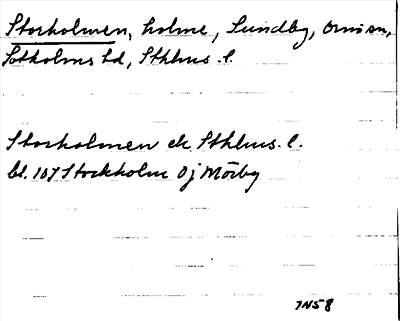 Storholmen, holme, Sundby, Ornön,
Sotholms hd, Sthlms l.
Storholmen ek Sthlms l.
bl. 107 Stockholm Oj Mörby
IN58